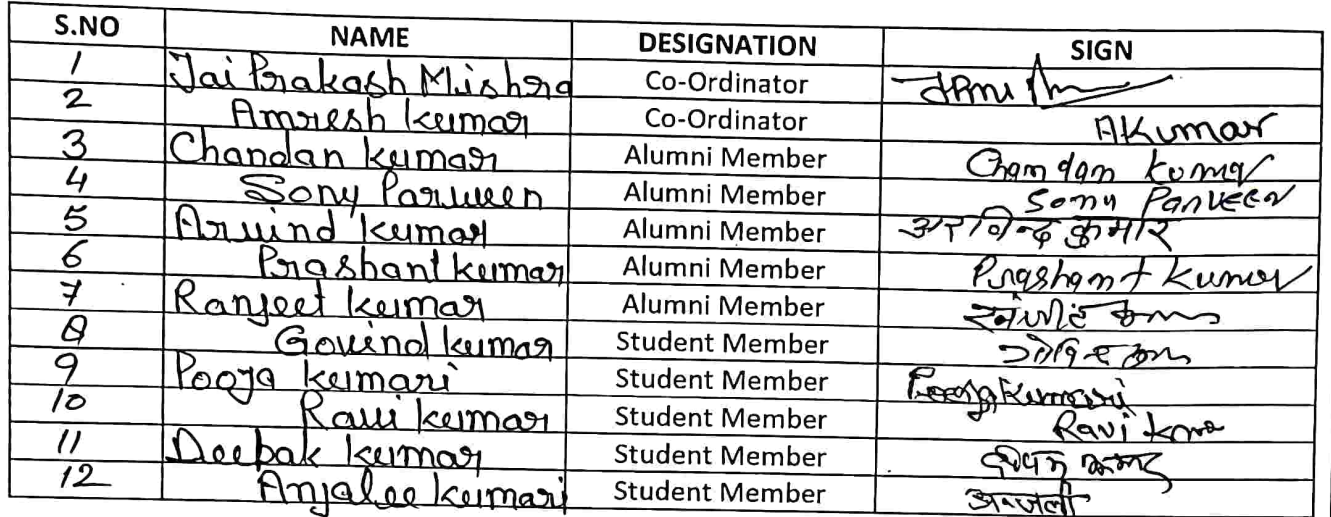 S.NO NAME DESIGNATION SIGN
1 Jai Prakash Mishra Co-Ordinator
2 Amresh kumar Co-Ordinator AKumar
3 Chandan kumar Alumni Member Chandan Kumar
4 Sony Parween Alumni Member Sony Parveen
5 Arvind kumar Alumni Member अरविन्द कुमार
6 Prashant kumar Alumni Member Prashant Kumar
7 Ranjeet kumar Alumni Member
8 Govind kumar Student Member
9 Pooja kumari Student Member Pooja Kumari
10 Ravi kumar Student Member Ravi
11 Deepak kumar Student Member
12 Anjalee kumari Student Member अन्जली